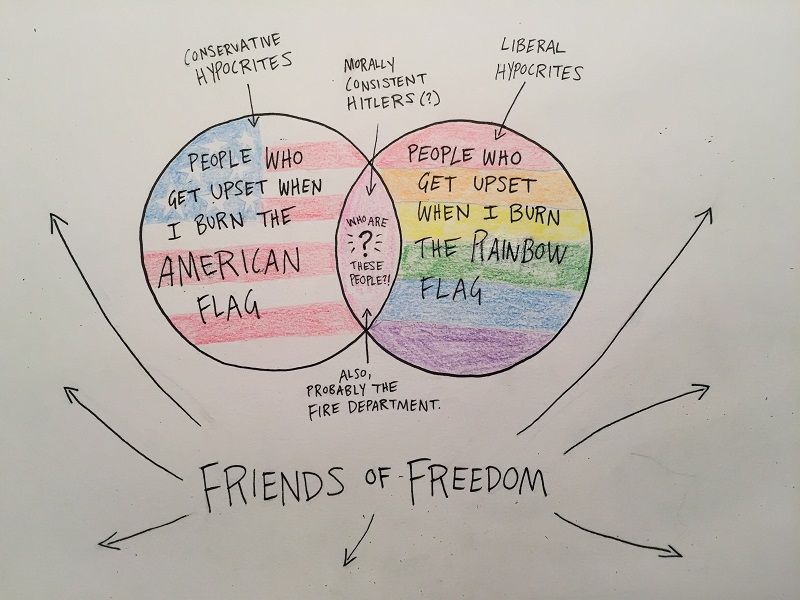 CONSERVATIVE
HYPOCRITES
MORALLY
CONSISTENT
HITLERS (?)
LIBERAL
HYPOCRITES
PEOPLE WHO
GET UPSET WHEN
I BURN THE
AMERICAN
FLAG
WHO ARE
?
THESE
PEOPLE?!
PEOPLE WHO
GET UPSET
WHEN I BURN
THE RAINBOW
FLAG
ALSO,
PROBABLY THE
FIRE DEPARTMENT.
FRIENDS OF FREEDOM